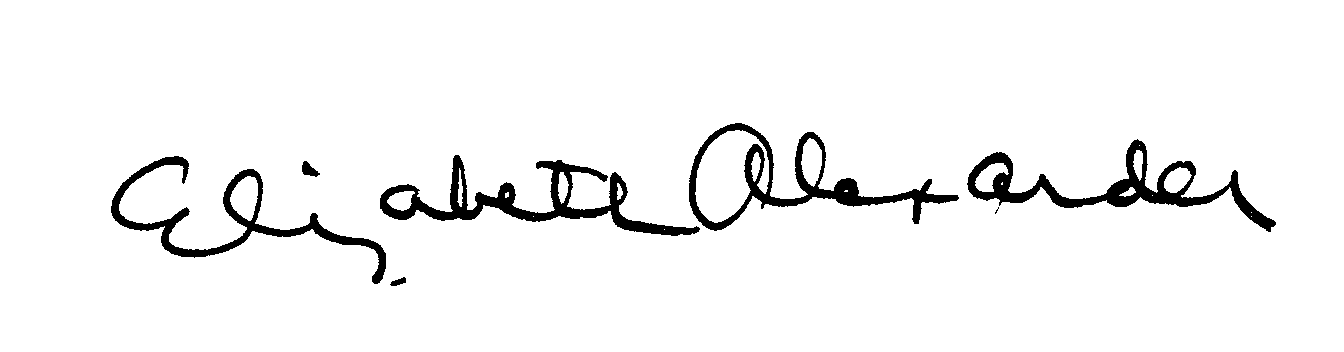 Elizabeth Alexander